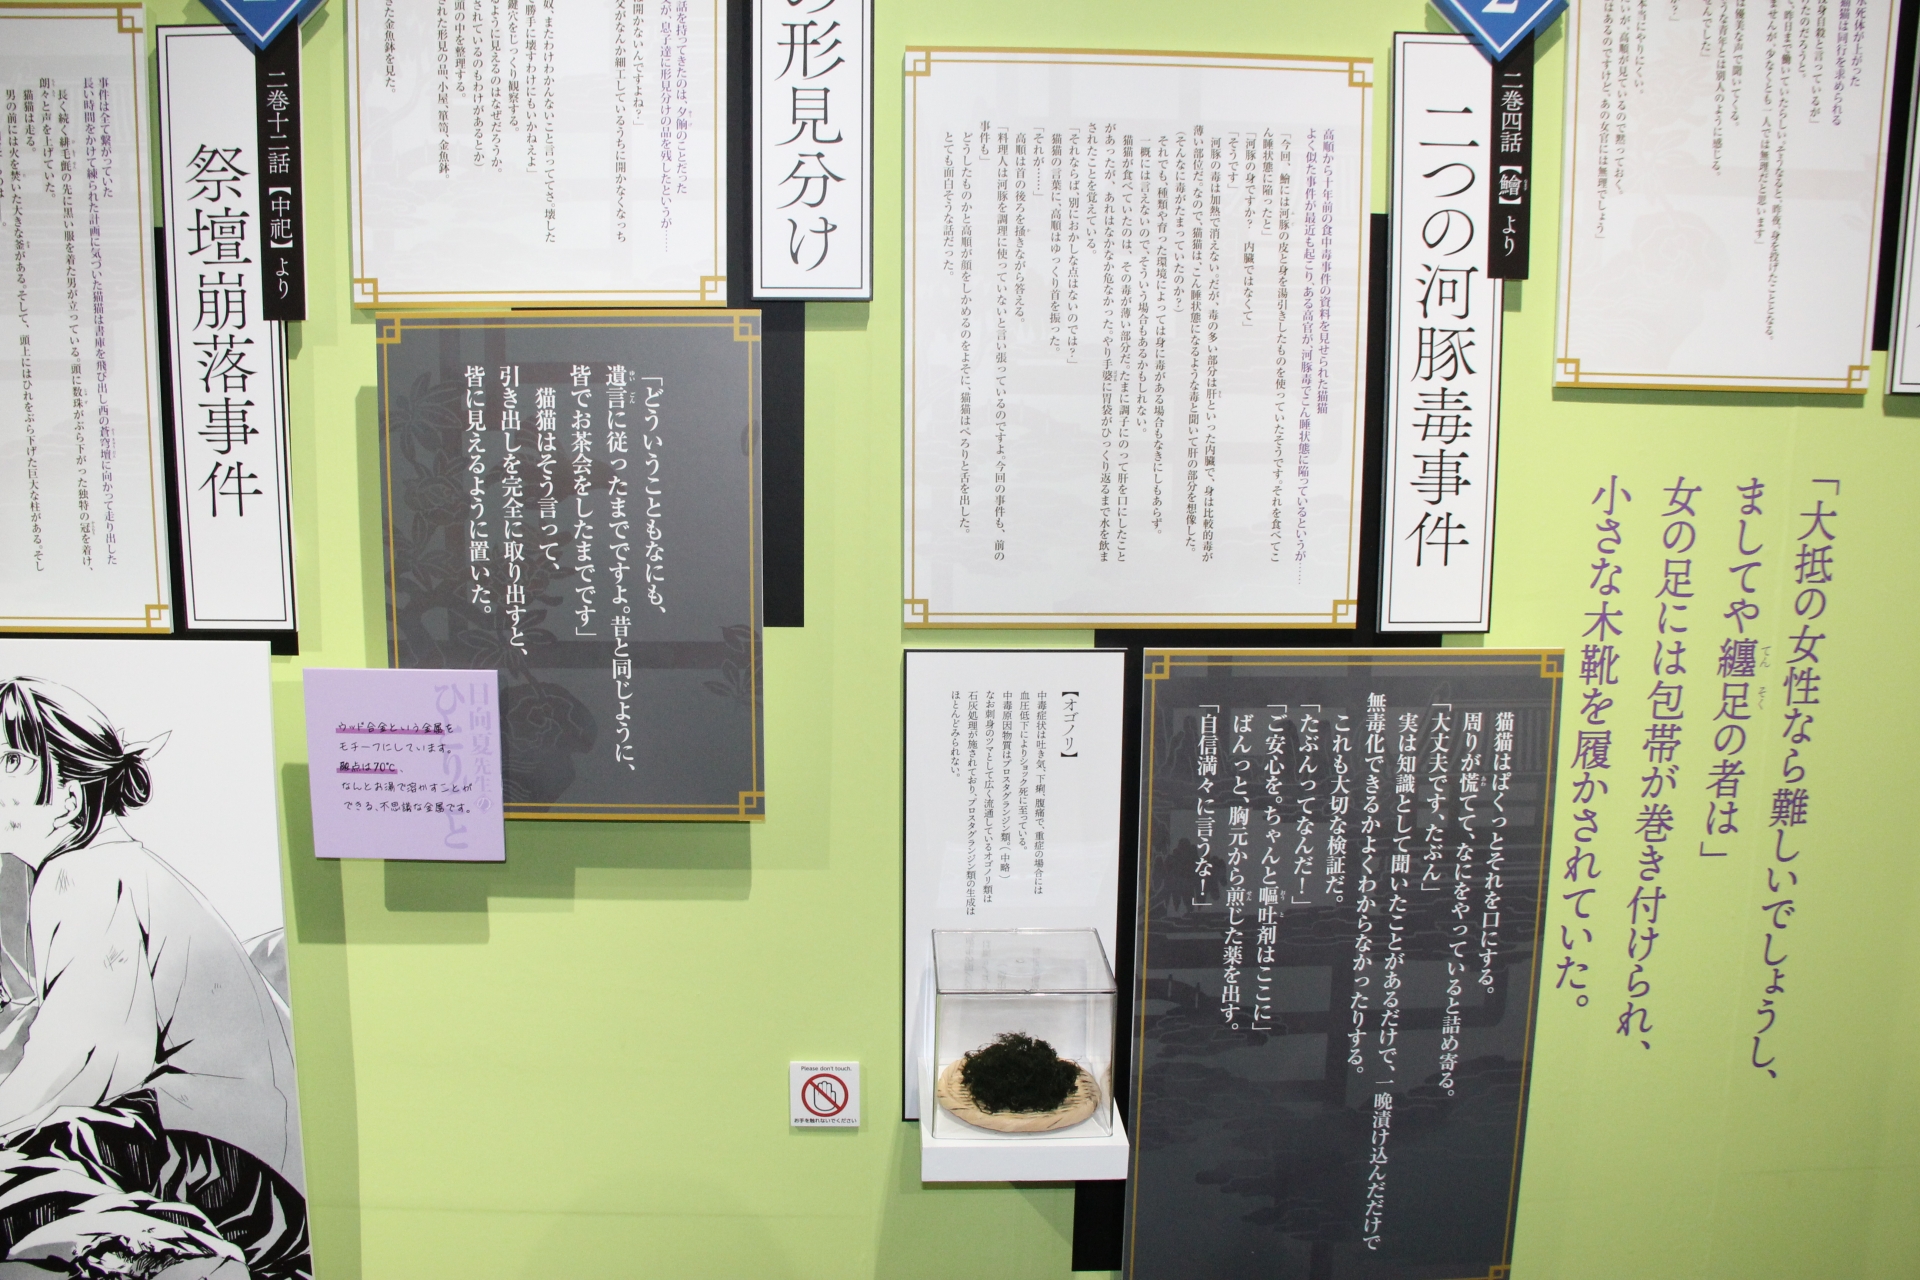 水死体が上がった
猫猫は同行を求められる
投身自殺と言っているが」
ったのだろうと。
、昨日まで働いていたらしい。そうなると、昨夜、身を投げたことになる。
ませんが、少なくとも一人では無理だと思います」
は優美な声で聞いてくる。
うな青年とは別人のように感じる。
でした」
か？」
本当にやりにくい。
いが、高順が見ているので黙っておく。
はあるのですけど、あの女官には無理でしょう」
「大抵の女性なら難しいでしょうし、
ましてや纏足の者は」
てんそく
女の足には包帯が巻き付けられ、
小さな木靴を履かされていた。
2
二巻四話【鱠】より
二つの河豚毒事件
高順から十年前の食中毒事件の資料を見せられた猫猫
よく似た事件が最近も起こり、ある高官が、河豚毒でこん睡状態に陥っているというが……
「今回、鱠には河豚の皮と身を湯引きしたものを使っていたそうです。それを食べてこ
ん睡状態に陥ったと」
「河豚の身ですか？　内臓ではなくて」
「そうです」
河豚の毒は加熱で消えない。だが、毒の多い部分は肝といった内臓で、身は比較的毒が
薄い部位だ。なので、猫猫は、こん睡状態になるような毒と聞いて肝の部分を想像した。
（そんなに毒がたまっていたのか？）
それでも、種類や育った環境によっては身に毒がある場合もなきにしもあらず。
一概には言えないので、そういう場合もあるかもしれない。
猫猫が食べていたのは、その毒が薄い部分だ。たまに調子にのって肝を口にしたこと
があったが、あれはなかなか危なかった。やり手婆に胃袋がひっくり返るまで水を飲ま
されたことを覚えている。
「それならば、別におかしな点はないのでは？」
猫猫の言葉に、高順はゆっくり首を振った。
「それが……」
高順は首の後ろを掻きながら答える。
「料理人は河豚を調理に使っていないと言い張っているのですよ。今回の事件も、前の
事件も」
どうしたものかと高順が顔をしかめるのをよそに、猫猫はぺろりと舌を出した。
とても面白そうな話だった。
猫猫はぱくっとそれを口にする。
周りが慌てて、なにをやっていると詰め寄る。
「大丈夫です、たぶん」
実は知識として聞いたことがあるだけで、一晩漬け込んだだけで
無毒化できるかよくわからなかったりする。
これも大切な検証だ。
「たぶんってなんだ！」
「ご安心を。ちゃんと嘔吐剤はここに」
ばんっと、胸元から煎じた薬を出す。
「自信満々に言うな！」
【オゴノリ】
中毒症状は吐き気、下痢、腹痛で、重症の場合には
血圧低下によりショック死に至っている。
中毒原因物質はプロスタグランジン類。（中略）
なお刺身のツマとして広く流通しているオゴノリ類は
石灰処理が施されており、プロスタグランジン類の生成は
ほとんどみられない。
Please don't touch.
お手を触れないでください
の形見分け
話を持ってきたのは、夕餉のことだった
父が、息子達に形見分けの品を残したというが……
は開かないんですよね？」
父がなんか細工しているうちに開かなくなっち
奴、またわけわかんないこと言っててさ。壊した
と勝手に壊すわけにもいかねえよ」
鍵穴をじっくり観察する。
るように見えるのはなぜだろうか。
されているのもわけがあるとか）
頭の中を整理する。
された形見の品、小屋、箪笥、金魚鉢。
きた金魚鉢を見た。
「どういうこともなにも、
遺言に従ったまでですよ。昔と同じように、
ゆいごん
皆でお茶会をしたまでです」
猫猫はそう言って、
引き出しを完全に取り出すと、
皆に見えるように置いた。
日向夏先生の
ひとりごと
ウッド合金という金属を
モチーフにしています。
融点は70℃、
なんとお湯で溶かすことが
できる、不思議な金属です。
二巻十二話【中祀】より
祭壇崩落事件
事件は全て繋がっていた
長い時間をかけて練られた計画に気づいた猫猫は書庫を飛び出し西の蒼穹壇に向かって走り出した
長く続く緋毛氈の先に黒い服を着た男が立っている。頭に数珠がぶら下がった独特の冠を着け、
朗々と声を上げていた。
猫猫は走る。
男の前には火を焚いた大きな釜がある。そして、頭上にはひれをぶら下げた巨大な柱がある。そし